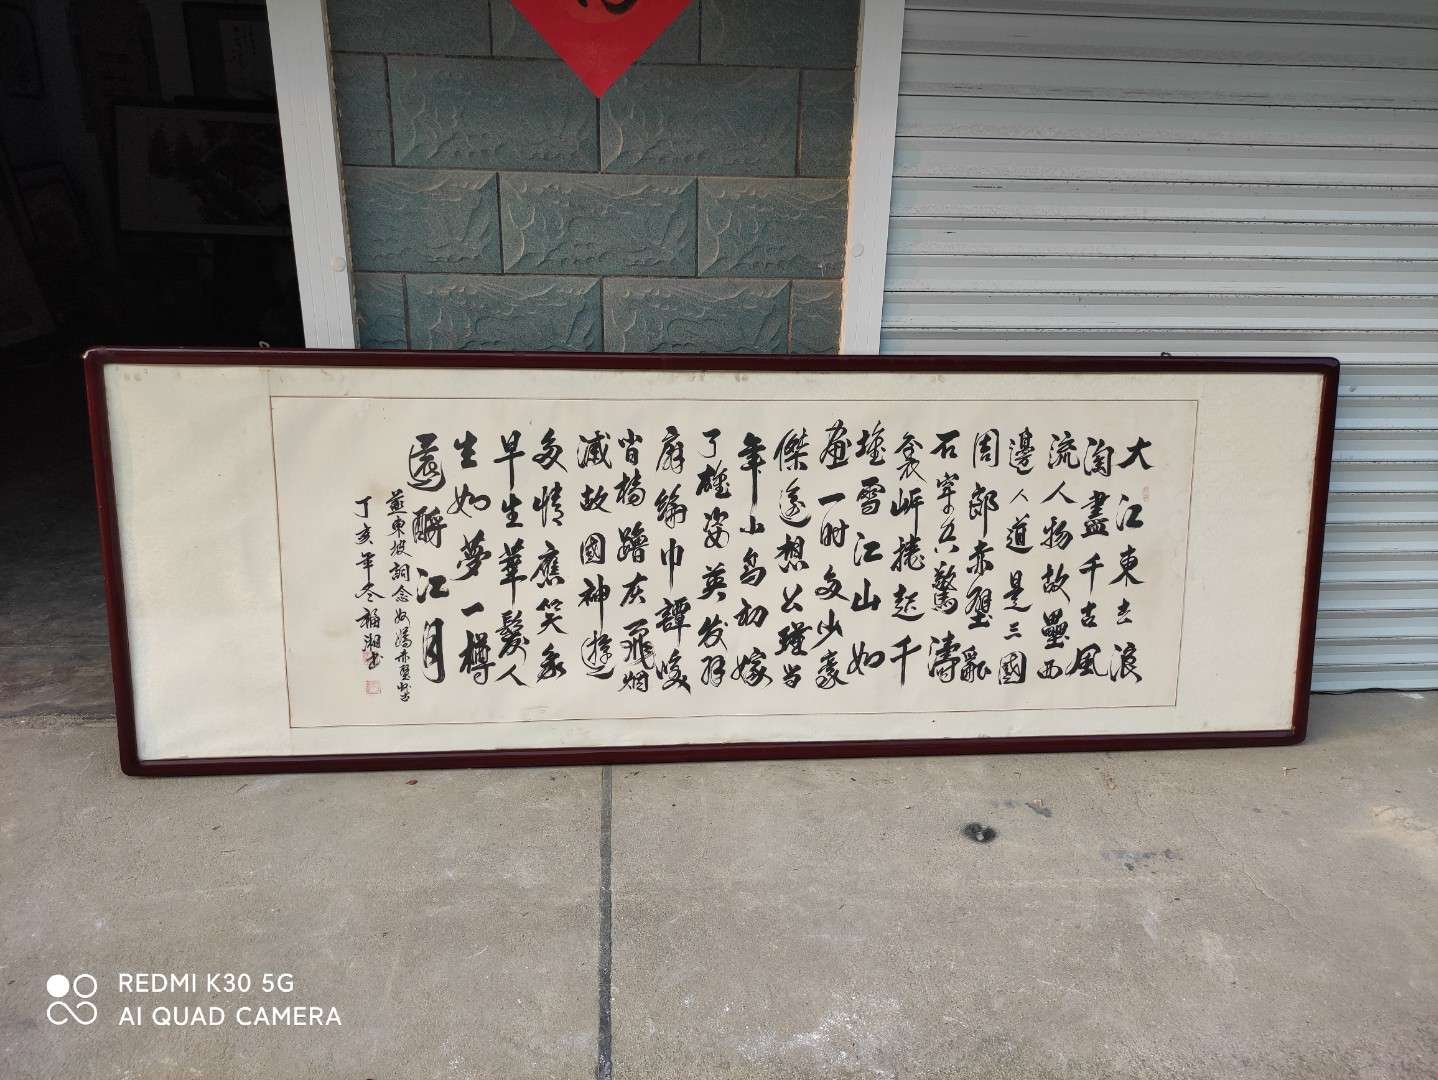 大江東去浪
淘盡千古風
流人物故壘西
邊人道是三國
周郎赤壁亂
石穿空驚濤
裂岸捲起千
堆雪江山如
畫一時多少豪
傑遙想公瑾當
年小喬初嫁
了雄姿英發羽
扇綸巾譚咲
檣艪灰飛烟
滅故國神遊
多情應笑我
早生華髮人
生如夢一樽
還酹江月
蘇東坡詞念奴嬌赤壁懷古
丁亥年冬福湘書
REDMI K30 5G
AI QUAD CAMERA